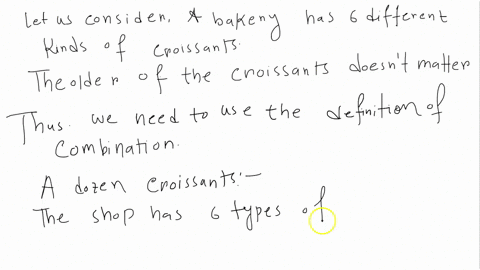 Let us consider, A bakery has 6 different
kinds of croissants.
The older of the croissants doesn't matter
Thus. we need to use the definition of
combination.
A dozen croissants:-
The shop has 6 types of